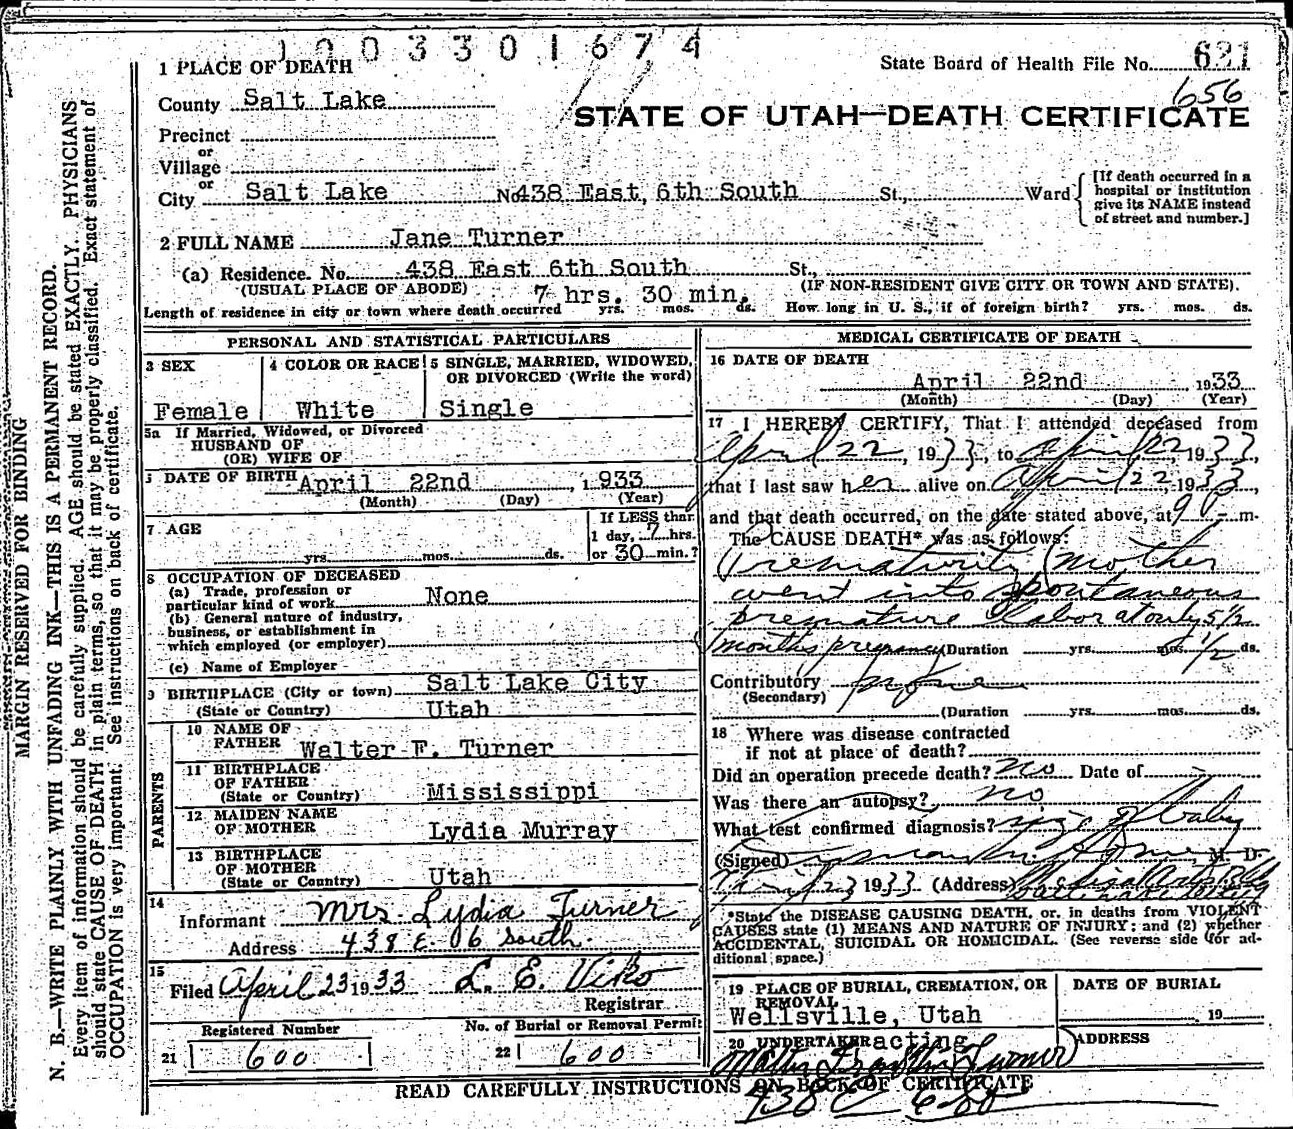 1003301674
1 PLACE OF DEATH
State Board of Health File No. 621
656
County Salt Lake
STATE OF UTAH—DEATH CERTIFICATE
Precinct
or
Village
or
City Salt Lake No. 438 East 6th South St., Ward
[If death occurred in a
hospital or institution
give its NAME instead
of street and number.]
2 FULL NAME Jane Turner
(a) Residence. No. 438 East 6th South St.,
(USUAL PLACE OF ABODE) (IF NON-RESIDENT GIVE CITY OR TOWN AND STATE).
7 hrs. 30 min.
Length of residence in city or town where death occurred yrs. mos. ds. How long in U. S., if of foreign birth? yrs. mos. ds.
PERSONAL AND STATISTICAL PARTICULARS
3 SEX
Female
4 COLOR OR RACE
White
5 SINGLE, MARRIED, WIDOWED,
OR DIVORCED (Write the word)
Single
5a If Married, Widowed, or Divorced
HUSBAND OF
(OR) WIFE OF
6 DATE OF BIRTH April 22nd, 1933
(Month) (Day) (Year)
7 AGE
yrs. mos. ds.
If LESS than
1 day, 7 hrs.
or 30 min.?
8 OCCUPATION OF DECEASED
(a) Trade, profession or
particular kind of work None
(b) General nature of industry,
business, or establishment in
which employed (or employer)
(c) Name of Employer
9 BIRTHPLACE (City or town) Salt Lake City
(State or Country) Utah
PARENTS
10 NAME OF
FATHER Walter F. Turner
11 BIRTHPLACE
OF FATHER
(State or Country) Mississippi
12 MAIDEN NAME
OF MOTHER Lydia Murray
13 BIRTHPLACE
OF MOTHER
(State or Country) Utah
14
Informant Mrs. Lydia Turner
Address 438 E. 06 South.
15
Filed April 23 1933 L. E. Viko
Registrar
Registered Number
21 600
No. of Burial or Removal Permit
22 600
MEDICAL CERTIFICATE OF DEATH
16 DATE OF DEATH
April 22nd 1933
(Month) (Day) (Year)
17 I HEREBY CERTIFY, That I attended deceased from
April 22, 1933, to April 22, 1933,
that I last saw her alive on April 22, 1933,
and that death occurred, on the date stated above, at 9 P-m.
The CAUSE DEATH* was as follows:
Prematurity (Mother
went into spontaneous
premature labor at only 5 1/2
months pregnancy (Duration yrs. mos. 1/2 ds.
Contributory none
(Secondary)
(Duration yrs. mos. ds.
18 Where was disease contracted
if not at place of death?
Did an operation precede death? no Date of
Was there an autopsy? no
What test confirmed diagnosis? size of baby
(Signed) M. D.
April 23 1933 (Address) Medical Arts Bldg
*State the DISEASE CAUSING DEATH, or, in deaths from VIOLENT
CAUSES state (1) MEANS AND NATURE OF INJURY; and (2) whether
ACCIDENTAL, SUICIDAL OR HOMICIDAL. (See reverse side for ad-
ditional space.)
19 PLACE OF BURIAL, CREMATION, OR
REMOVAL
Wellsville, Utah
DATE OF BURIAL
19
20 UNDERTAKER acting
Walter Franklin Turner
ADDRESS
438 E 6 So
READ CAREFULLY INSTRUCTIONS ON BACK OF CERTIFICATE
MARGIN RESERVED FOR BINDING
N. B.—WRITE PLAINLY WITH UNFADING INK—THIS IS A PERMANENT RECORD.
Every item of information should be carefully supplied. AGE should be stated EXACTLY. PHYSICIANS
should state CAUSE OF DEATH in plain terms, so that it may be properly classified. Exact statement of
OCCUPATION is very important. See instructions on back of certificate.